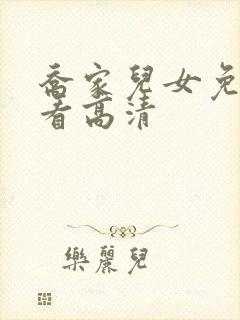 喬家兒女免
看高清
樂麗兒